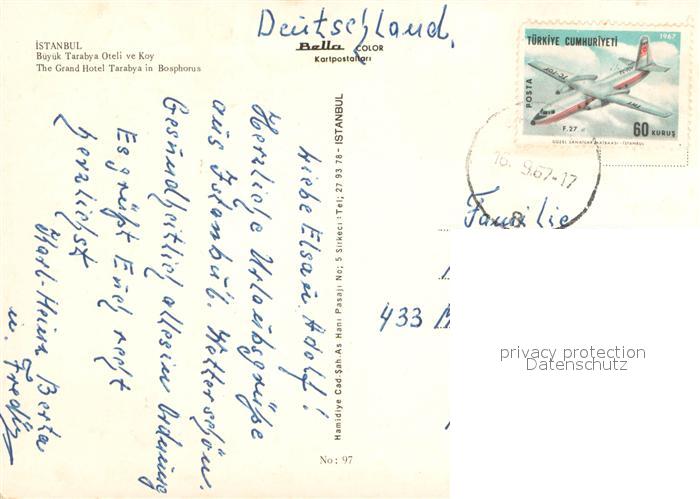 İSTANBUL
Büyük Tarabya Oteli ve Koy
The Grand Hotel Tarabya in Bosphorus
Deutschland,
Bella COLOR
Kartpostalları
1967
TÜRKİYE CUMHURİYETİ
POSTA
TC-TOP
THY
F.27
60 KURUŞ
GÜZEL SANATLAR MATBAASI - İSTANBUL
16.9.67-17
Liebe Elsa u. Adolf!
Herzliche Urlaubsgrüße
aus Istanbul. Wetter schön.
Gesundheitlich alles in Ordnung
Es grüßt Euch recht
herzlichst
Karl-Heinz Berta
u. Fredy
Hamidiye Cad. Şah. As Hanı Pasajı No; 5 Sirkeci : Tel; 27 93 78 - İSTANBUL
No: 97
Familie
433 M
privacy protection
Datenschutz